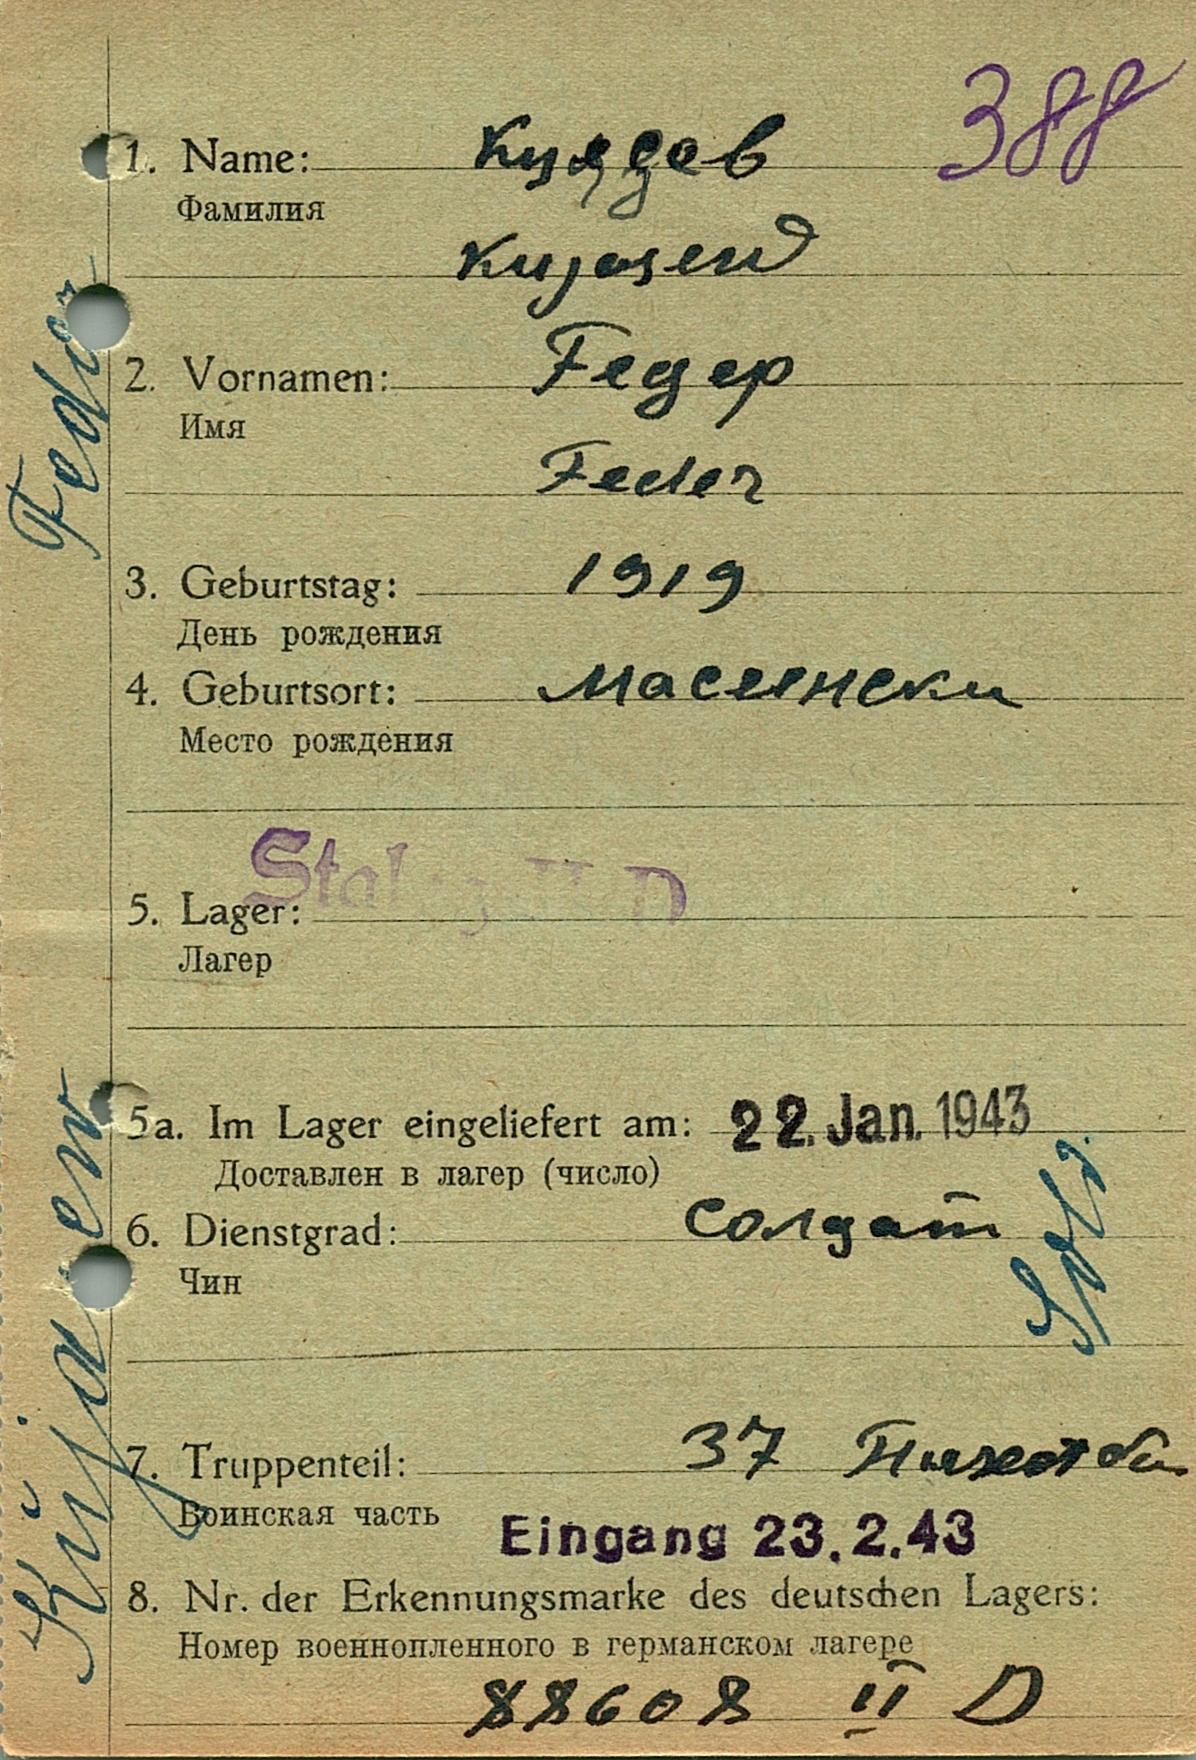 388
1. Name: Князев
Фамилия
Kujasew
2. Vornamen: Федер
Имя
Feder
3. Geburtstag: 1919
День рождения
4. Geburtsort:
Место рождения
Stalag II D
5. Lager:
Лагер
5a. Im Lager eingeliefert am: 22. Jan. 1943
Доставлен в лагер (число)
6. Dienstgrad: Солдат
Чин
Sold.
7. Truppenteil: 37
Воинская часть
Eingang 23.2.43
8. Nr. der Erkennungsmarke des deutschen Lagers:
Номер военнопленного в германском лагере
88608 II D
Kujaew Fedor